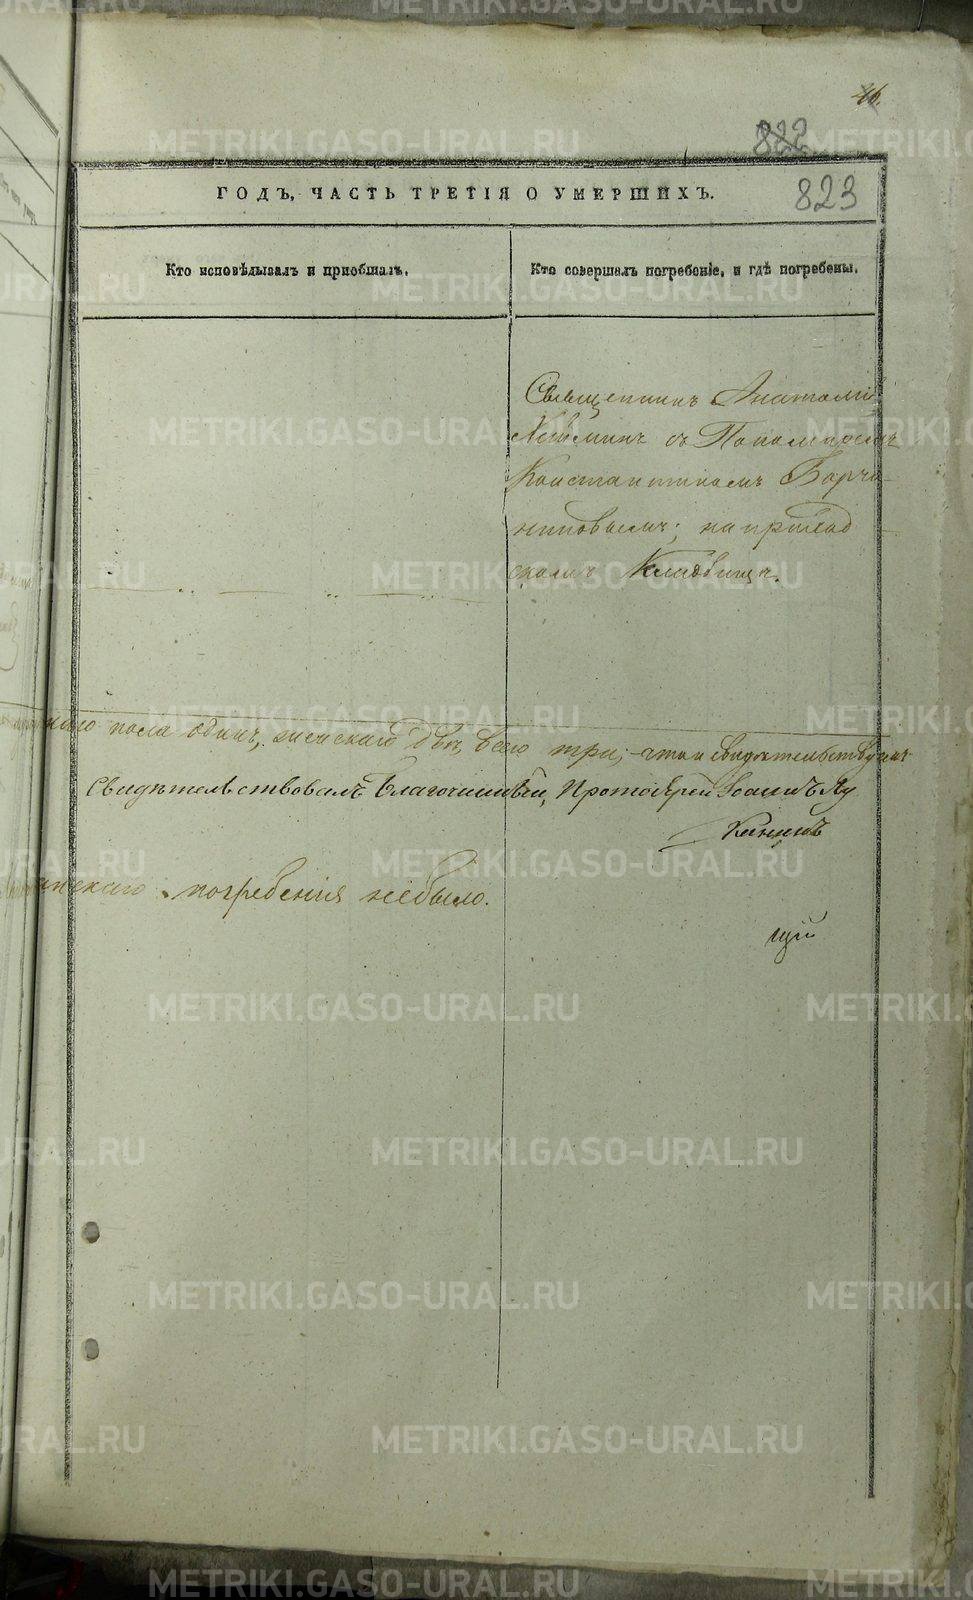 46.
822
823
ГОДЪ, ЧАСТЬ ТРЕТІЯ О УМЕРШИХЪ.
Кто исповѣдывалъ и пріобщалъ.
Кто совершалъ погребеніе, и гдѣ погребены.
Священникъ Анатолій
съ Пономаремъ
Константиномъ Ворча-
ниновымъ; на приход
скомъ Кладбищѣ.
пола одинъ, женскаго двѣ, всего три; что и свидѣтельствуемъ
Свидѣтельствовалъ Благочинный, Протоіерей Іоаннъ Лу
канинъ
погребенія небыло.
щій
METRIKI.GASO-URAL.RU